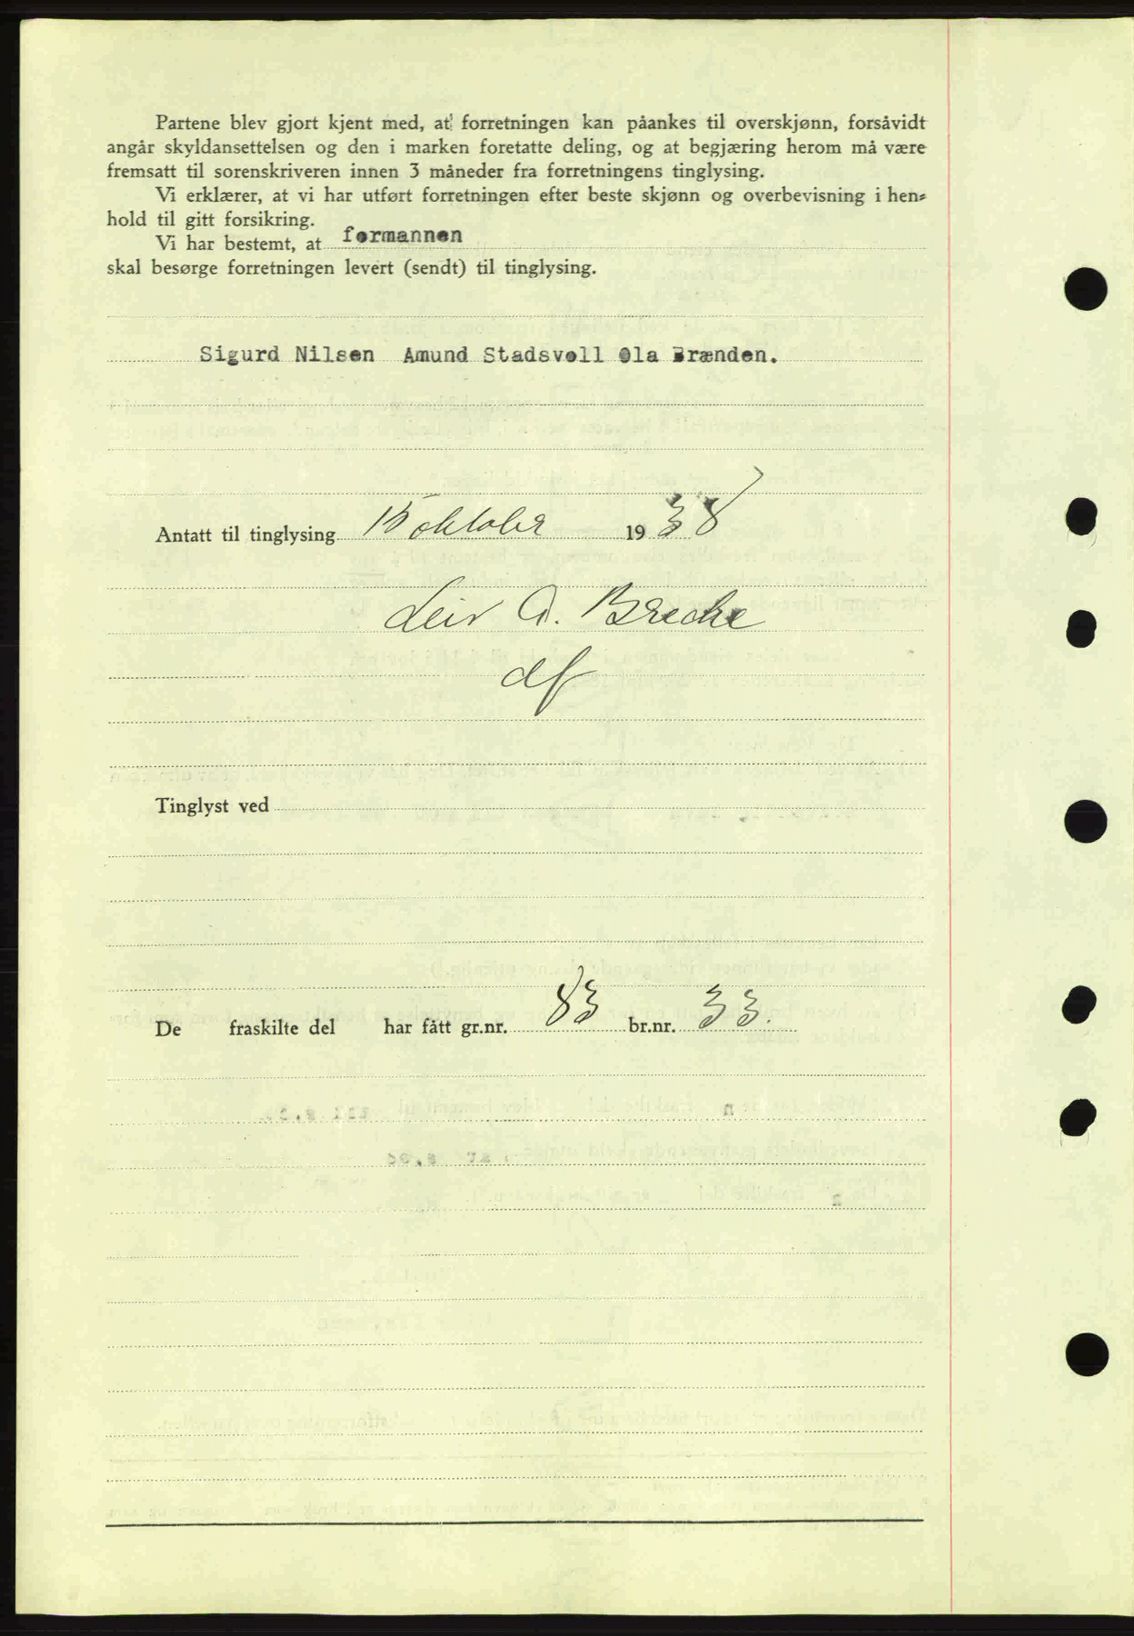 Partene blev gjort kjent med, at forretningen kan påankes til overskjønn, forsåvidt
angår skyldansettelsen og den i marken foretatte deling, og at begjæring herom må være
fremsatt til sorenskriveren innen 3 måneder fra forretningens tinglysing.
Vi erklærer, at vi har utført forretningen efter beste skjønn og overbevisning i hen-
hold til gitt forsikring.
Vi har bestemt, at formannen
skal besørge forretningen levert (sendt) til tinglysing.
Sigurd Nilsen Amund Stadsvoll Ola Brænden.
Antatt til tinglysing 15 oktober 1938
Leiv A. Brecke
df
Tinglyst ved
De fraskilte del har fått gr.nr. 83 br.nr. 33.